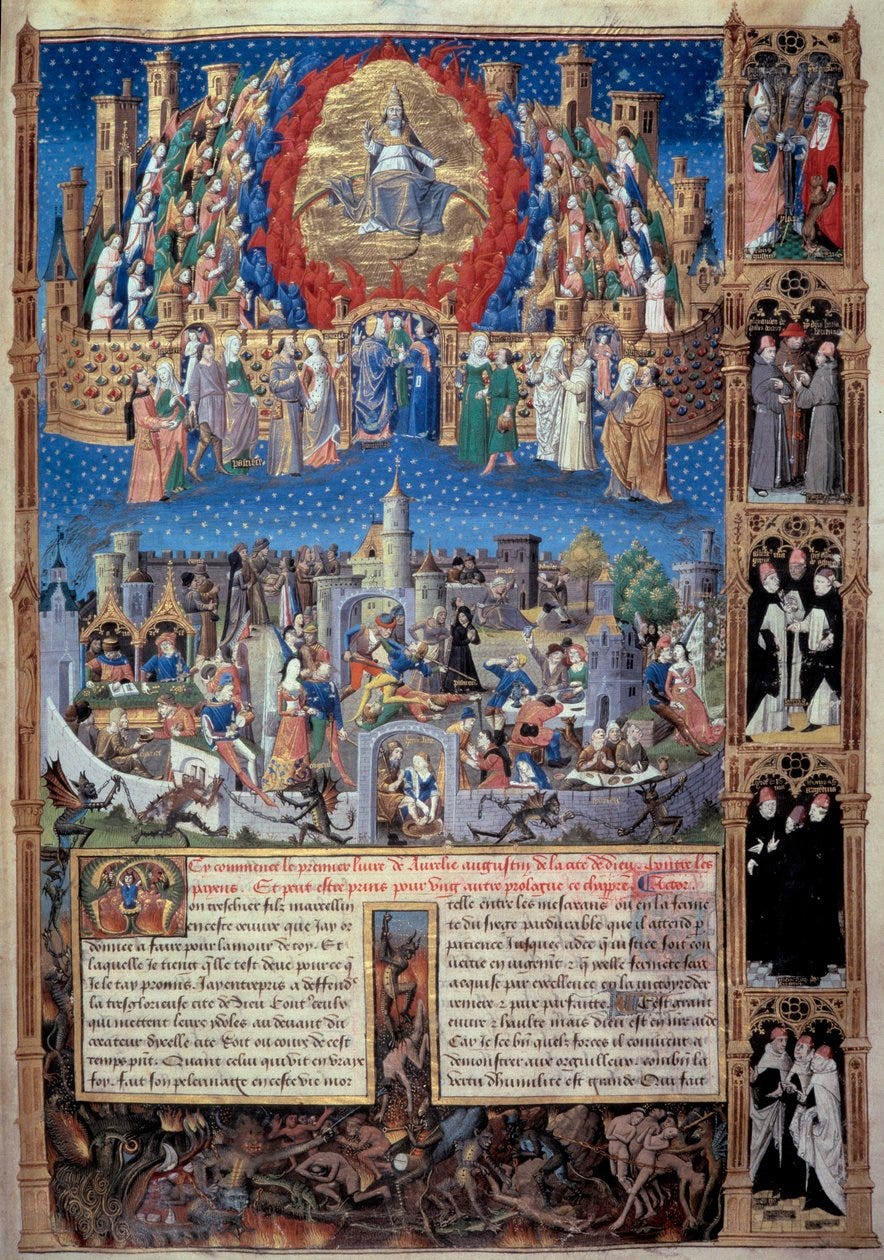 Cy commence le premier liure de Aurelie augustin de la cite de dieu. Contre les
payens. Et peut estre prins pour vng autre prologue ce chappre. Lactor.
Mon treschier filz marcellin
en ceste oeuure que Jay or
donnee a faire pour lamour de toy. Et
laquelle Je tieng qlle test deue pource q
Je le tay promis. Jay entrepris a deffend
la tresglorieuse cite de dieu Cont ceulx
qui mettent leurs ydoles au deuant du
createur dicelle cite Soit ou cours de cest
temps pnt. Quant celui qui vit en vraye
foy. fait son pelerinage en ceste vie mor
telle entre les mescreans ou en la ferme
te du siege pardurable que il attend p
patience Jusques adce q iustice soit con
uertie en iugemt & q ycelle fermete sera
acquise par excellence en la victoyre der
reniere & paix parfaitte. Cest grant
euure & haulte mais dieu est en nre aide
Car Je sce bn quelz forces il conuient a
demonstrer aux orguilleux. combn la
vertu dhumilite est grande Qui fait